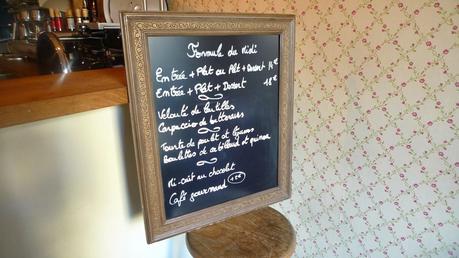 Formule du Midi
Entrée + Plat ou Plt + Dessert 14€
Entrée + Plat + Dessert 18€
Velouté de lentilles
Carpaccio de betteraves
Tourte de poulet et légumes
Boulettes de cabillaud et quinoa
Mi-cuit au chocolat
Café gourmand +2€